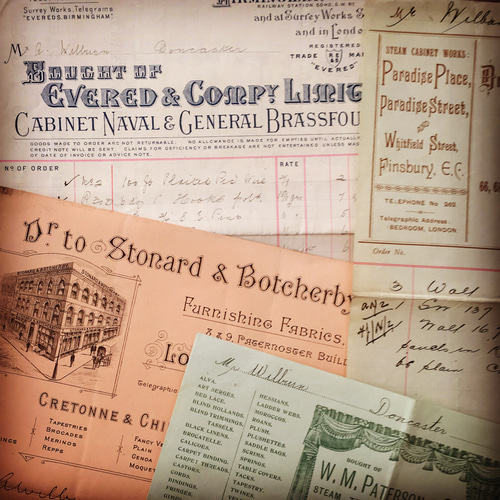 Surrey Works.Telegrams
"EVEREDS, BIRMINGHAM."
and at Surrey Works S
and in Londo
REGISTERED
TRADE MA
"EVERES"
Mr Wilburn Doncaster
BOUGHT OF
EVERED & COMPY. LIMIT
CABINET NAVAL & GENERAL BRASSFOU
GOODS MADE TO ORDER ARE NOT RETURNABLE. NO ALLOWANCE IS MADE FOR EMPTIES UNTIL ACTUALLY
CREDIT NOTE WILL BE SENT. CLAIMS FOR DEFICIENCY OR BREAKAGE ARE NOT ENTERTAINED UNLESS MA
OF DATE OF INVOICE OR ADVICE NOTE.
No OF ORDER
RATE
Mr Wilbu
STEAM CABINET WORKS:
Paradise Place,
Paradise Street,
and
Whitfield Street,
Finsbury, E.C.
TELEPHONE No 262
Telegraphic Address:
BEDROOM, LONDON
66,
Order No.
3 Wall
137
Wall 16
panels in
66 plain
Dr. to Stonard & Botcherby
FURNISHING FABRICS.
7 & 9, PATERNOSTER BUIL
Lo
Telegraphic
STONARD & BOTCHERBY
CRETONNE & CHI
TAPESTRIES
BROCADES
MERINOS
REPPS
FANCY VE
PLAIN
GENOA
MOQUET
INGS
Mr Wilburn
Doncaster
ALVA.
ART SERGES.
BED LACE.
BLIND HOLLANDS.
BLIND TRIMMINGS.
TASSELS.
BLACK LINENS.
BROCATELLE.
CALICOES.
CARPET BINDING.
CARPET THREADS.
CASTORS.
CORDS.
BINDINGS.
FRINGES.
HESSIANS.
LADDER WEBS.
MOROCCOS.
ROANS.
PLUSH.
PLUSHETTES.
SADDLE BAGS.
SCRIMS.
SPRINGS.
TABLE COVERS.
TACKS.
TAPESTRY.
TWINES.
BOUGHT OF
W. M. PATERSO
STEAM